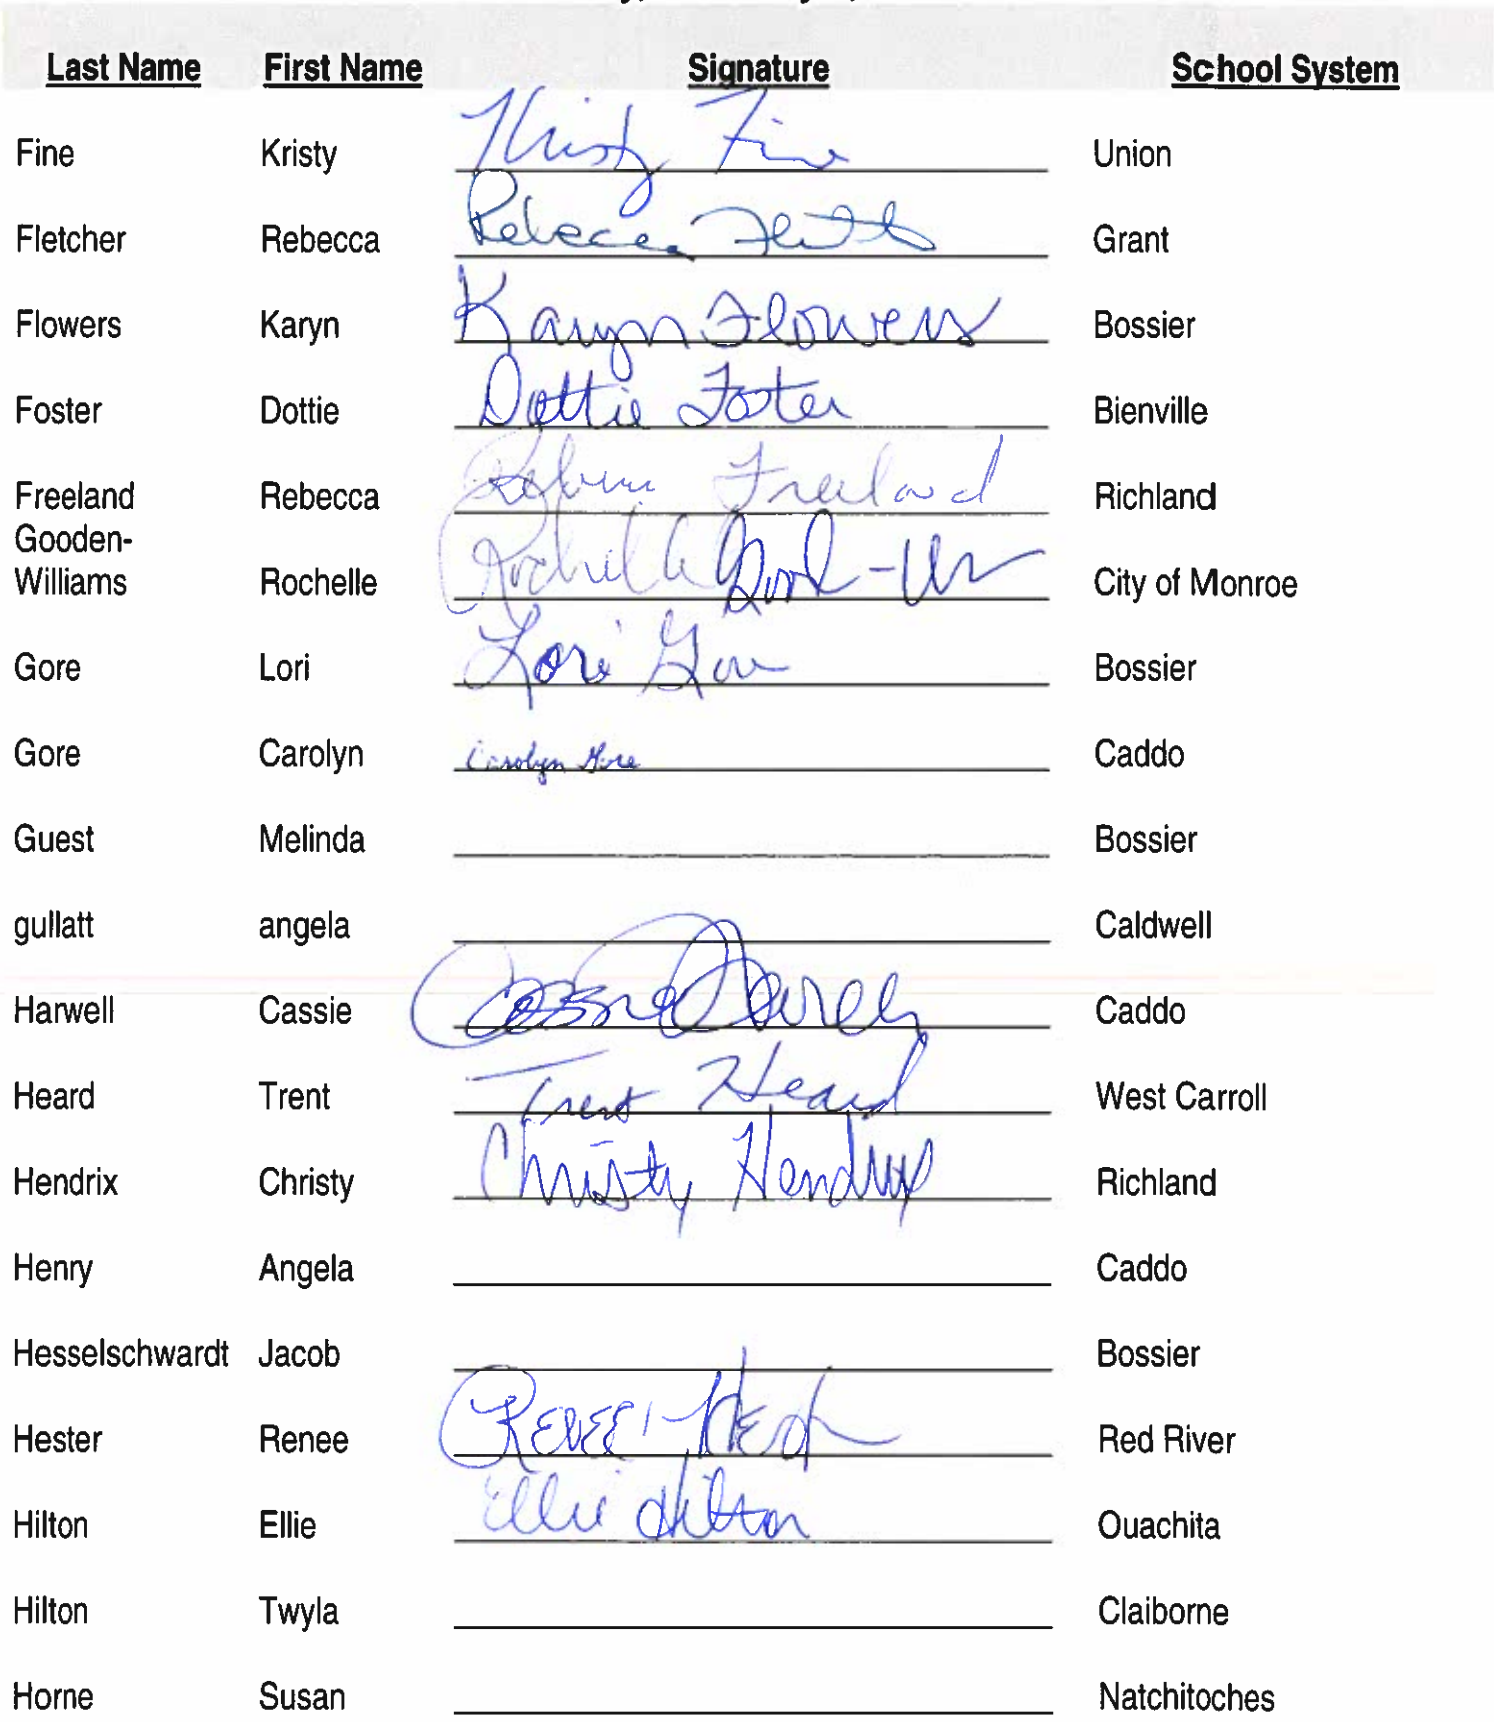 Last Name First Name Signature School System
Fine Kristy Kristy Fine Union
Fletcher Rebecca Rebecca Grant
Flowers Karyn Karyn Flowers Bossier
Foster Dottie Dottie Foster Bienville
Freeland Rebecca Rebecca Freeland Richland
Gooden-
Williams Rochelle Rochelle City of Monroe
Gore Lori Lori Gore Bossier
Gore Carolyn Carolyn Gore Caddo
Guest Melinda Bossier
gullatt angela Caldwell
Harwell Cassie Cassie Harwell Caddo
Heard Trent Trent Heard West Carroll
Hendrix Christy Christy Hendrix Richland
Henry Angela Caddo
Hesselschwardt Jacob Bossier
Hester Renee Renee Red River
Hilton Ellie Ellie Hilton Ouachita
Hilton Twyla Claiborne
Horne Susan Natchitoches